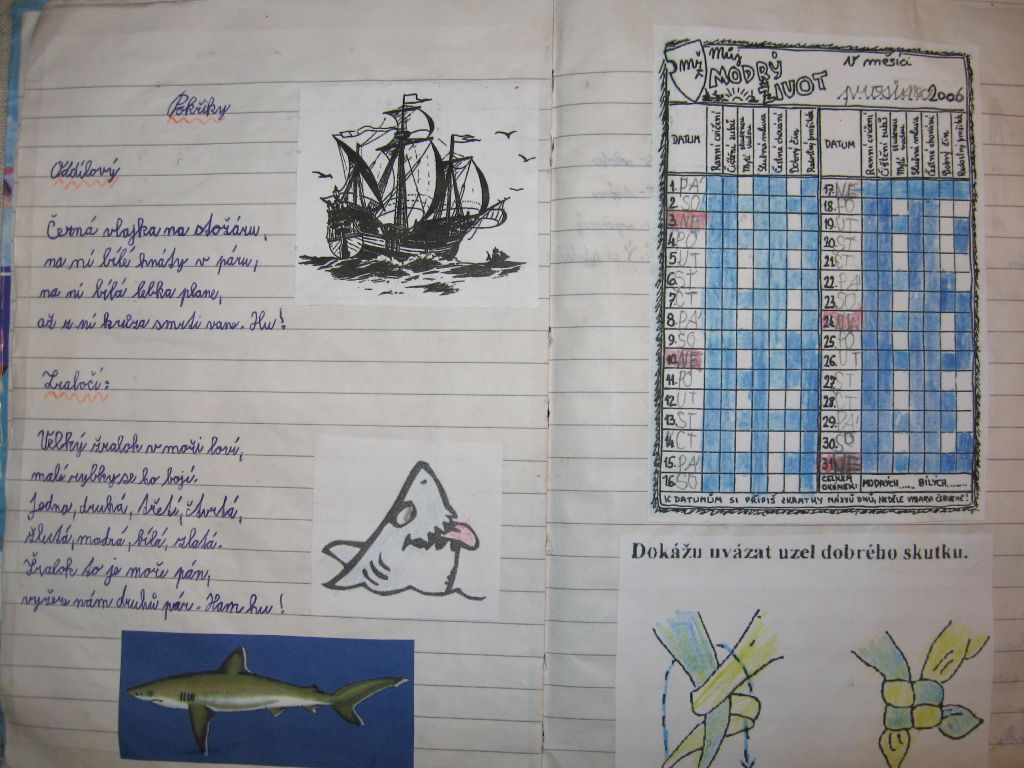 Pokřiky
Oddílový
Černá vlajka na stožáru,
na ní bílé hnáty v páru,
na ní bílá lebka plane,
až z ní hrůza smrti vane. Hu!
Žraločí:
Velký žralok v moři loví,
malé rybky se ho bojí.
Jedna, druhá, třetí, čtvrtá,
žlutá, modrá, bílá, zlatá.
Žralok to je moře pán,
vyžere nám druhů pár. Ham hu!
Můj MODRÝ ŽIVOT
V měsíci
prosinec 2006
DATUM Ranní cvičení Čištění zubů Mytí Slušná mluva Čestné chování Dobrý čin
DATUM Ranní cvičení Čištění zubů Mytí Slušná mluva Čestné chování Dobrý čin
1. PÁ
2. SO
3. NE
4. PO
5. ÚT
6. ST
7. ČT
8. PÁ
9. SO
10. NE
11. PO
12. ÚT
13. ST
14. ČT
15. PÁ
16. SO
17. NE
18. PO
19. ÚT
20. ST
21. ČT
22. PÁ
23. SO
24. NE
25. PO
26. ÚT
27. ST
28. ČT
29. PÁ
30. SO
31. NE
CELKEM OKÉNEK: MODRÝCH...... BÍLÝCH......
K DATUMŮM SI PŘIPIŠ ZKRATKY NÁZVŮ DNŮ, NEDĚLE VYBARVI ČERVENĚ!
Dokážu uvázat uzel dobrého skutku.